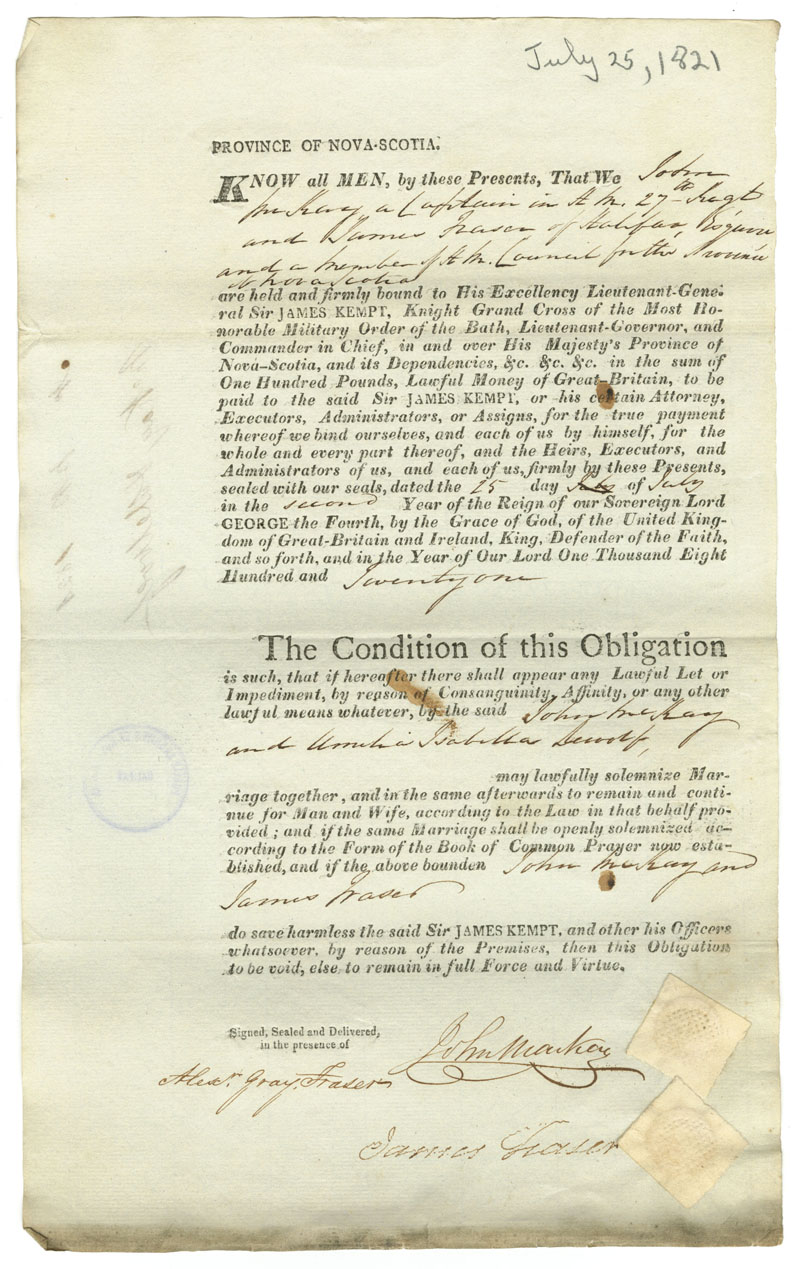 July 25, 1821
PROVINCE OF NOVA-SCOTIA.
KNOW all MEN, by these Presents, That We John
McKay a Captain in H. M. 27th Regt
and James Fraser of Halifax, Esquire
and a member of H. M. Council for the Province
of Nova Scotia
are held and firmly bound to His Excellency Lieutenant-Gene-
ral Sir JAMES KEMPT, Knight Grand Cross of the Most Ho-
norable Military Order of the Bath, Lieutenant-Governor, and
Commander in Chief, in and over His Majesty's Province of
Nova-Scotia, and its Dependencies, &c. &c. &c. in the sum of
One Hundred Pounds, Lawful Money of Great-Britain, to be
paid to the said Sir JAMES KEMPT, or his certain Attorney,
Executors, Administrators, or Assigns, for the true payment
whereof we bind ourselves, and each of us by himself, for the
whole and every part thereof, and the Heirs, Executors, and
Administrators of us, and each of us, firmly by these Presents,
sealed with our seals, dated the 25 day of July
in the second Year of the Reign of our Sovereign Lord
GEORGE the Fourth, by the Grace of God, of the United King-
dom of Great-Britain and Ireland, King, Defender of the Faith,
and so forth, and in the Year of Our Lord One Thousand Eight
Hundred and Twenty one
The Condition of this Obligation
is such, that if hereafter there shall appear any Lawful Let or
Impediment, by reason of Consanguinity, Affinity, or any other
lawful means whatever, by the said John McKay
and Amelia Isabella Dewolf,
may lawfully solemnize Mar-
riage together, and in the same afterwards to remain and conti-
nue for Man and Wife, according to the Law in that behalf pro-
vided; and if the same Marriage shall be openly solemnized ac-
cording to the Form of the Book of Common Prayer now esta-
blished, and if the above bounden John McKay and
James Fraser
do save harmless the said Sir JAMES KEMPT, and other his Officers
whatsoever, by reason of the Premises, then this Obligation
to be void, else to remain in full Force and Virtue.
Signed, Sealed and Delivered,
in the presence of
John Mackay
Alexr. Gray Fraser
James Fraser